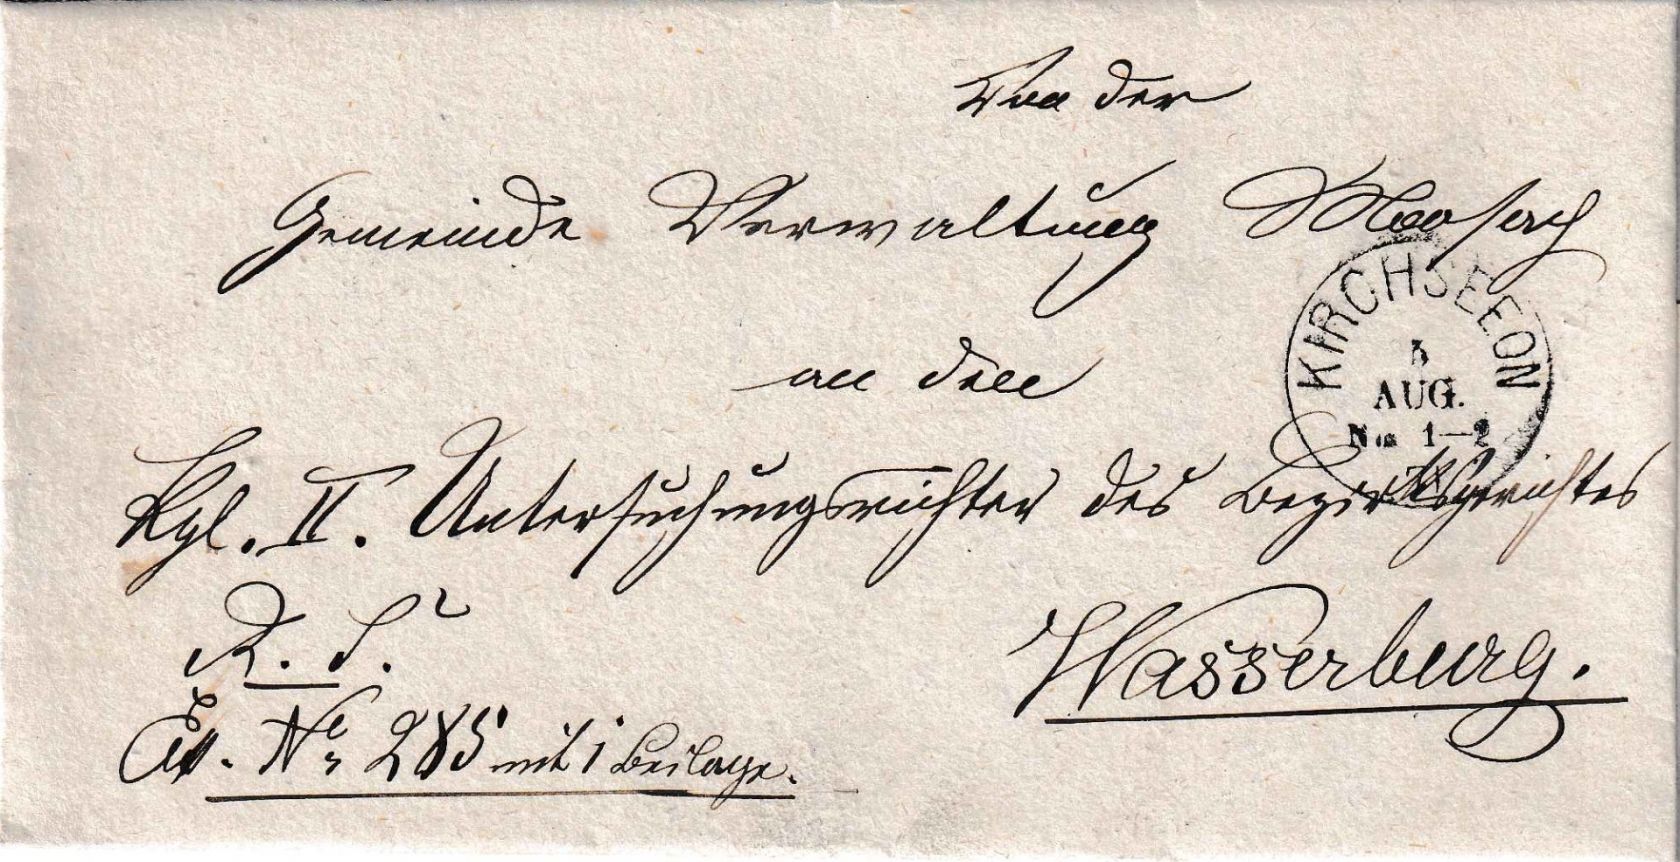 Von der
Gemeinde Verwaltung Moosach
an den
Kgl. II. Untersuchungsrichter des Bezirksgerichtes
Wasserburg.
R. S.
No 285 mit 1 Beilage.
KIRCHSEEON
AUG.
1-2